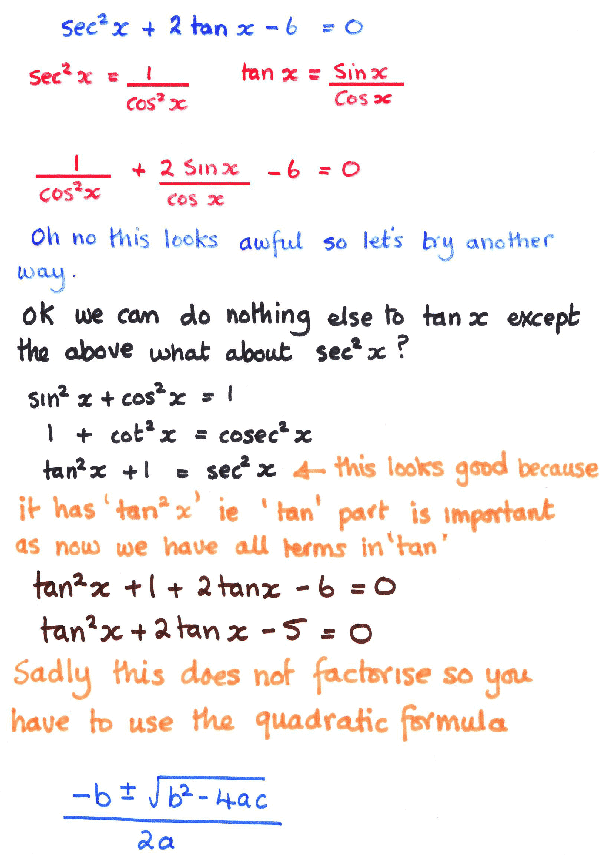 sec²x + 2 tan x - 6 = 0
sec²x = 1/cos²x tan x = Sin x/Cos x
1/cos²x + 2 Sin x/cos x - 6 = 0
Oh no this looks awful so let's try another
way.
OK we can do nothing else to tan x except
the above what about sec²x?
sin²x + cos²x = 1
1 + cot²x = cosec²x
tan²x + 1 = sec²x ← this looks good because
it has 'tan²x' ie 'tan' part is important
as now we have all terms in 'tan'
tan²x + 1 + 2 tanx - 6 = 0
tan²x + 2 tan x - 5 = 0
Sadly this does not factorise so you
have to use the quadratic formula
-b ± √b² - 4ac
2a